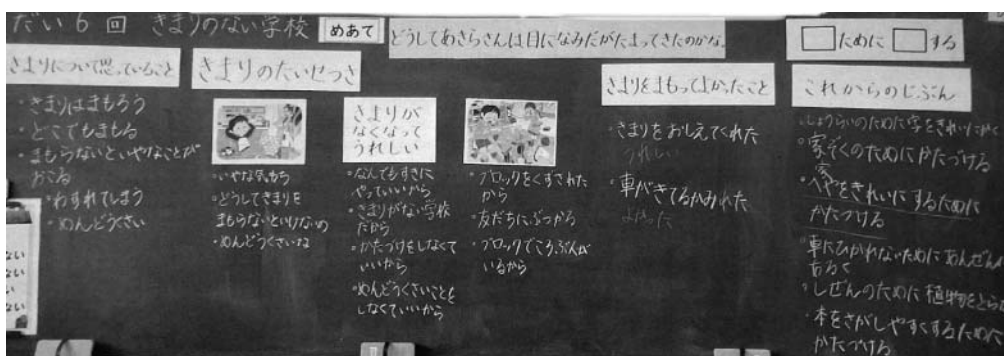 だい6回 きまりのない学校
めあて
どうしてあきらさんは目になみだがたまってきたのかな。
□ために□する
きまりについて思っていること
・きまりはまもろう
・どこでもまもる
・まもらないといやなことが
おこる
・わすれてしまう
・めんどうくさい
きまりのたいせつさ
・いやな気もち
・どうしてきまりを
まもらないといけないの
・めんどうくさいな
きまりが
なくなって
うれしい
・なんでもすきに
やっていいから
・きまりがない学校
だから
・かたづけをしなくて
いいから
・めんどうくさいことを
しなくていいから
・ブロックをくずされた
から
・友だちにぶつかる
・ブロックでころぶ人が
いるから
きまりをまもってよかったこと
・きまりをおしえてくれた
うれしい
・車がきてるかみれた
よかった
これからのじぶん
・しょうらいのために字をきれいにかく
・家ぞくのためにかたづける
・へやをきれいにするために
かたづける
・車にひかれないためにあんぜん
あるく
・しぜんのために植物をとら
・本をさがしやすくするために
かたづける
ない
ない
ない